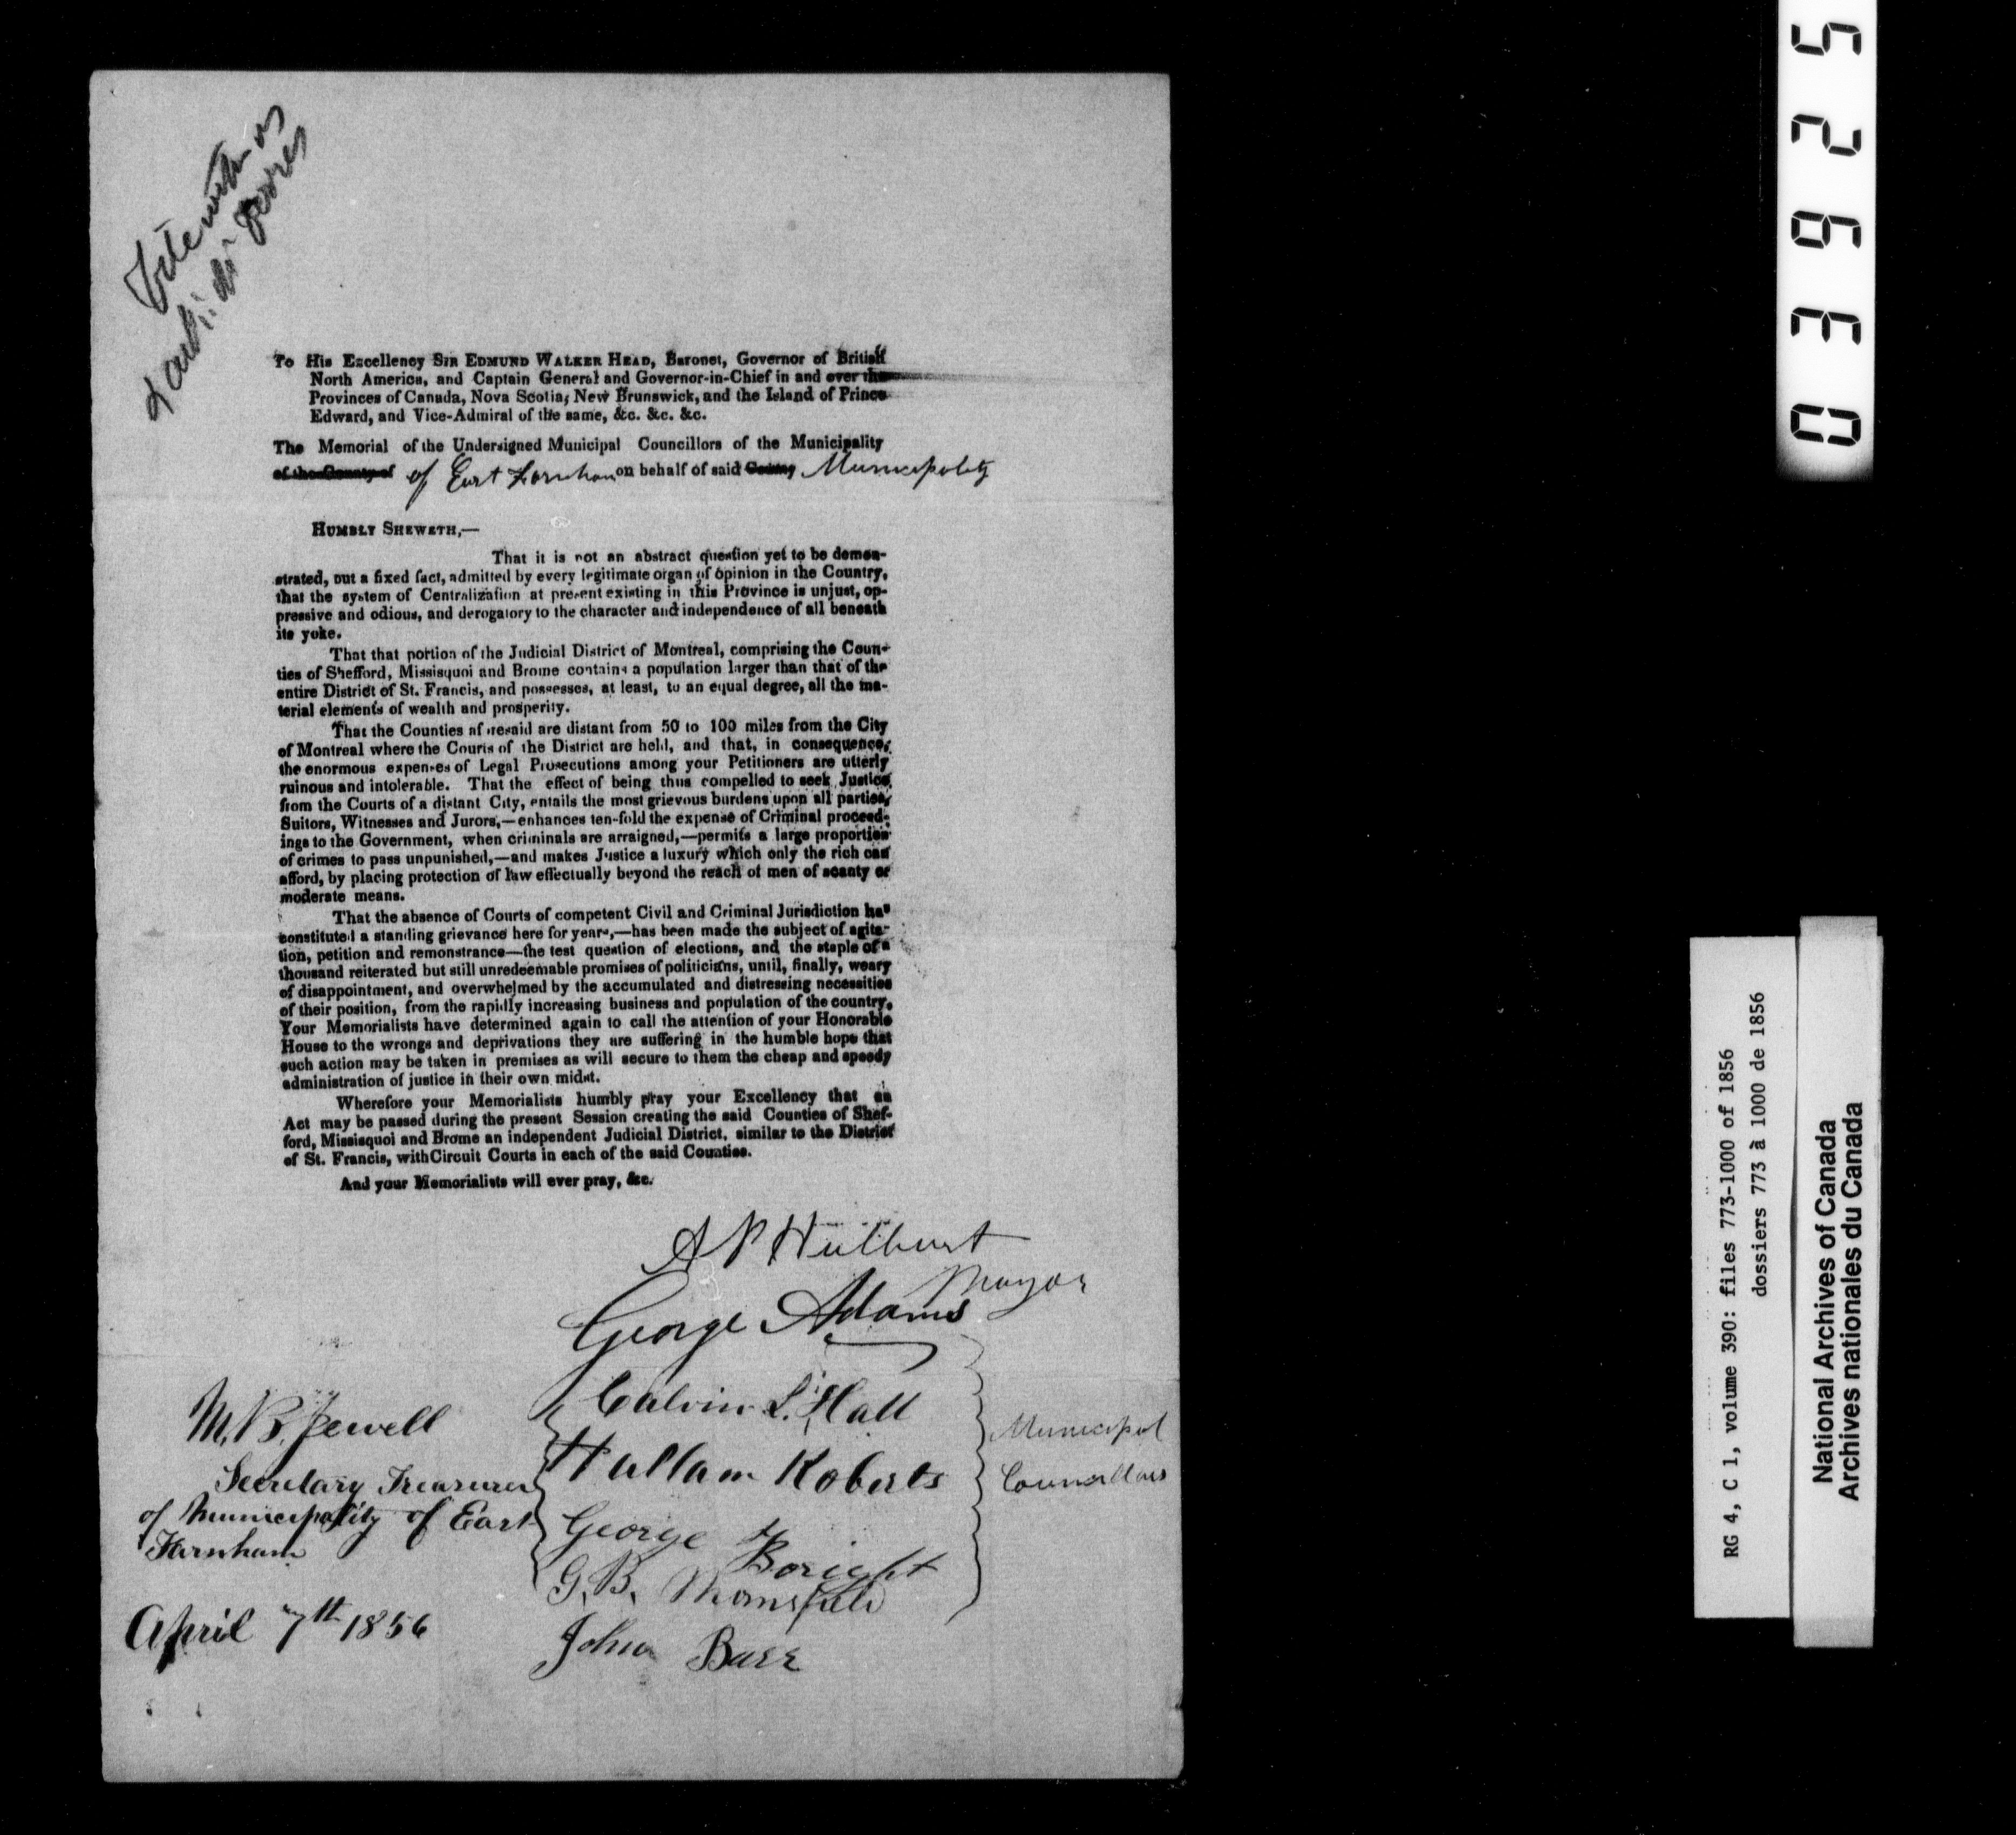 To His Excellency SIR EDMUND WALKER HEAD, Baronet, Governor of British
North America, and Captain General and Governor-in-Chief in and over the
Provinces of Canada, Nova Scotia, New Brunswick, and the Island of Prince
Edward, and Vice-Admiral of the same, &c. &c. &c.
The Memorial of the Undersigned Municipal Councillors of the Municipality
of the County of of East Farnham on behalf of said County Municipality
HUMBLY SHEWETH,—
That it is not an abstract question yet to be demon-
strated, but a fixed fact, admitted by every legitimate organ of opinion in the Country,
that the system of Centralization at present existing in this Province is unjust, op-
pressive and odious, and derogatory to the character and independence of all beneath
its yoke.
That that portion of the Judicial District of Montreal, comprising the Coun-
ties of Shefford, Missisquoi and Brome contains a population larger than that of the
entire District of St. Francis, and possesses, at least, to an equal degree, all the ma-
terial elements of wealth and prosperity.
That the Counties aforesaid are distant from 50 to 100 miles from the City
of Montreal where the Courts of the District are held, and that, in consequence,
the enormous expenses of Legal Prosecutions among your Petitioners are utterly
ruinous and intolerable. That the effect of being thus compelled to seek Justice
from the Courts of a distant City, entails the most grievous burdens upon all parties,
Suitors, Witnesses and Jurors,—enhances ten-fold the expense of Criminal proceed-
ings to the Government, when criminals are arraigned,—permits a large proportion
of crimes to pass unpunished,—and makes Justice a luxury which only the rich can
afford, by placing protection of law effectually beyond the reach of men of scanty or
moderate means.
That the absence of Courts of competent Civil and Criminal Jurisdiction has
constituted a standing grievance here for years,—has been made the subject of agita-
tion, petition and remonstrance—the test question of elections, and the staple of a
thousand reiterated but still unredeemable promises of politicians, until, finally, weary
of disappointment, and overwhelmed by the accumulated and distressing necessities
of their position, from the rapidly increasing business and population of the country,
Your Memorialists have determined again to call the attention of your Honorable
House to the wrongs and deprivations they are suffering in the humble hope that
such action may be taken in premises as will secure to them the cheap and speedy
administration of justice in their own midst.
Wherefore your Memorialists humbly pray your Excellency that an
Act may be passed during the present Session creating the said Counties of Shef-
ford, Missisquoi and Brome an independent Judicial District, similar to the District
of St. Francis, with Circuit Courts in each of the said Counties.
And your Memorialists will ever pray, &c.
A P Hulburt
Mayor
George Adams
Calvin L. Hall
Hullam Roberts
George Boright
G. B. Mansfield
John Barr
Municipal
Councillors
M. B. Jewell
Secretary Treasurer
of Municipality of East
Farnham
April 7th 1856
03925
RG 4, C 1, volume 390: files 773-1000 of 1856
dossiers 773 à 1000 de 1856
National Archives of Canada
Archives nationales du Canada